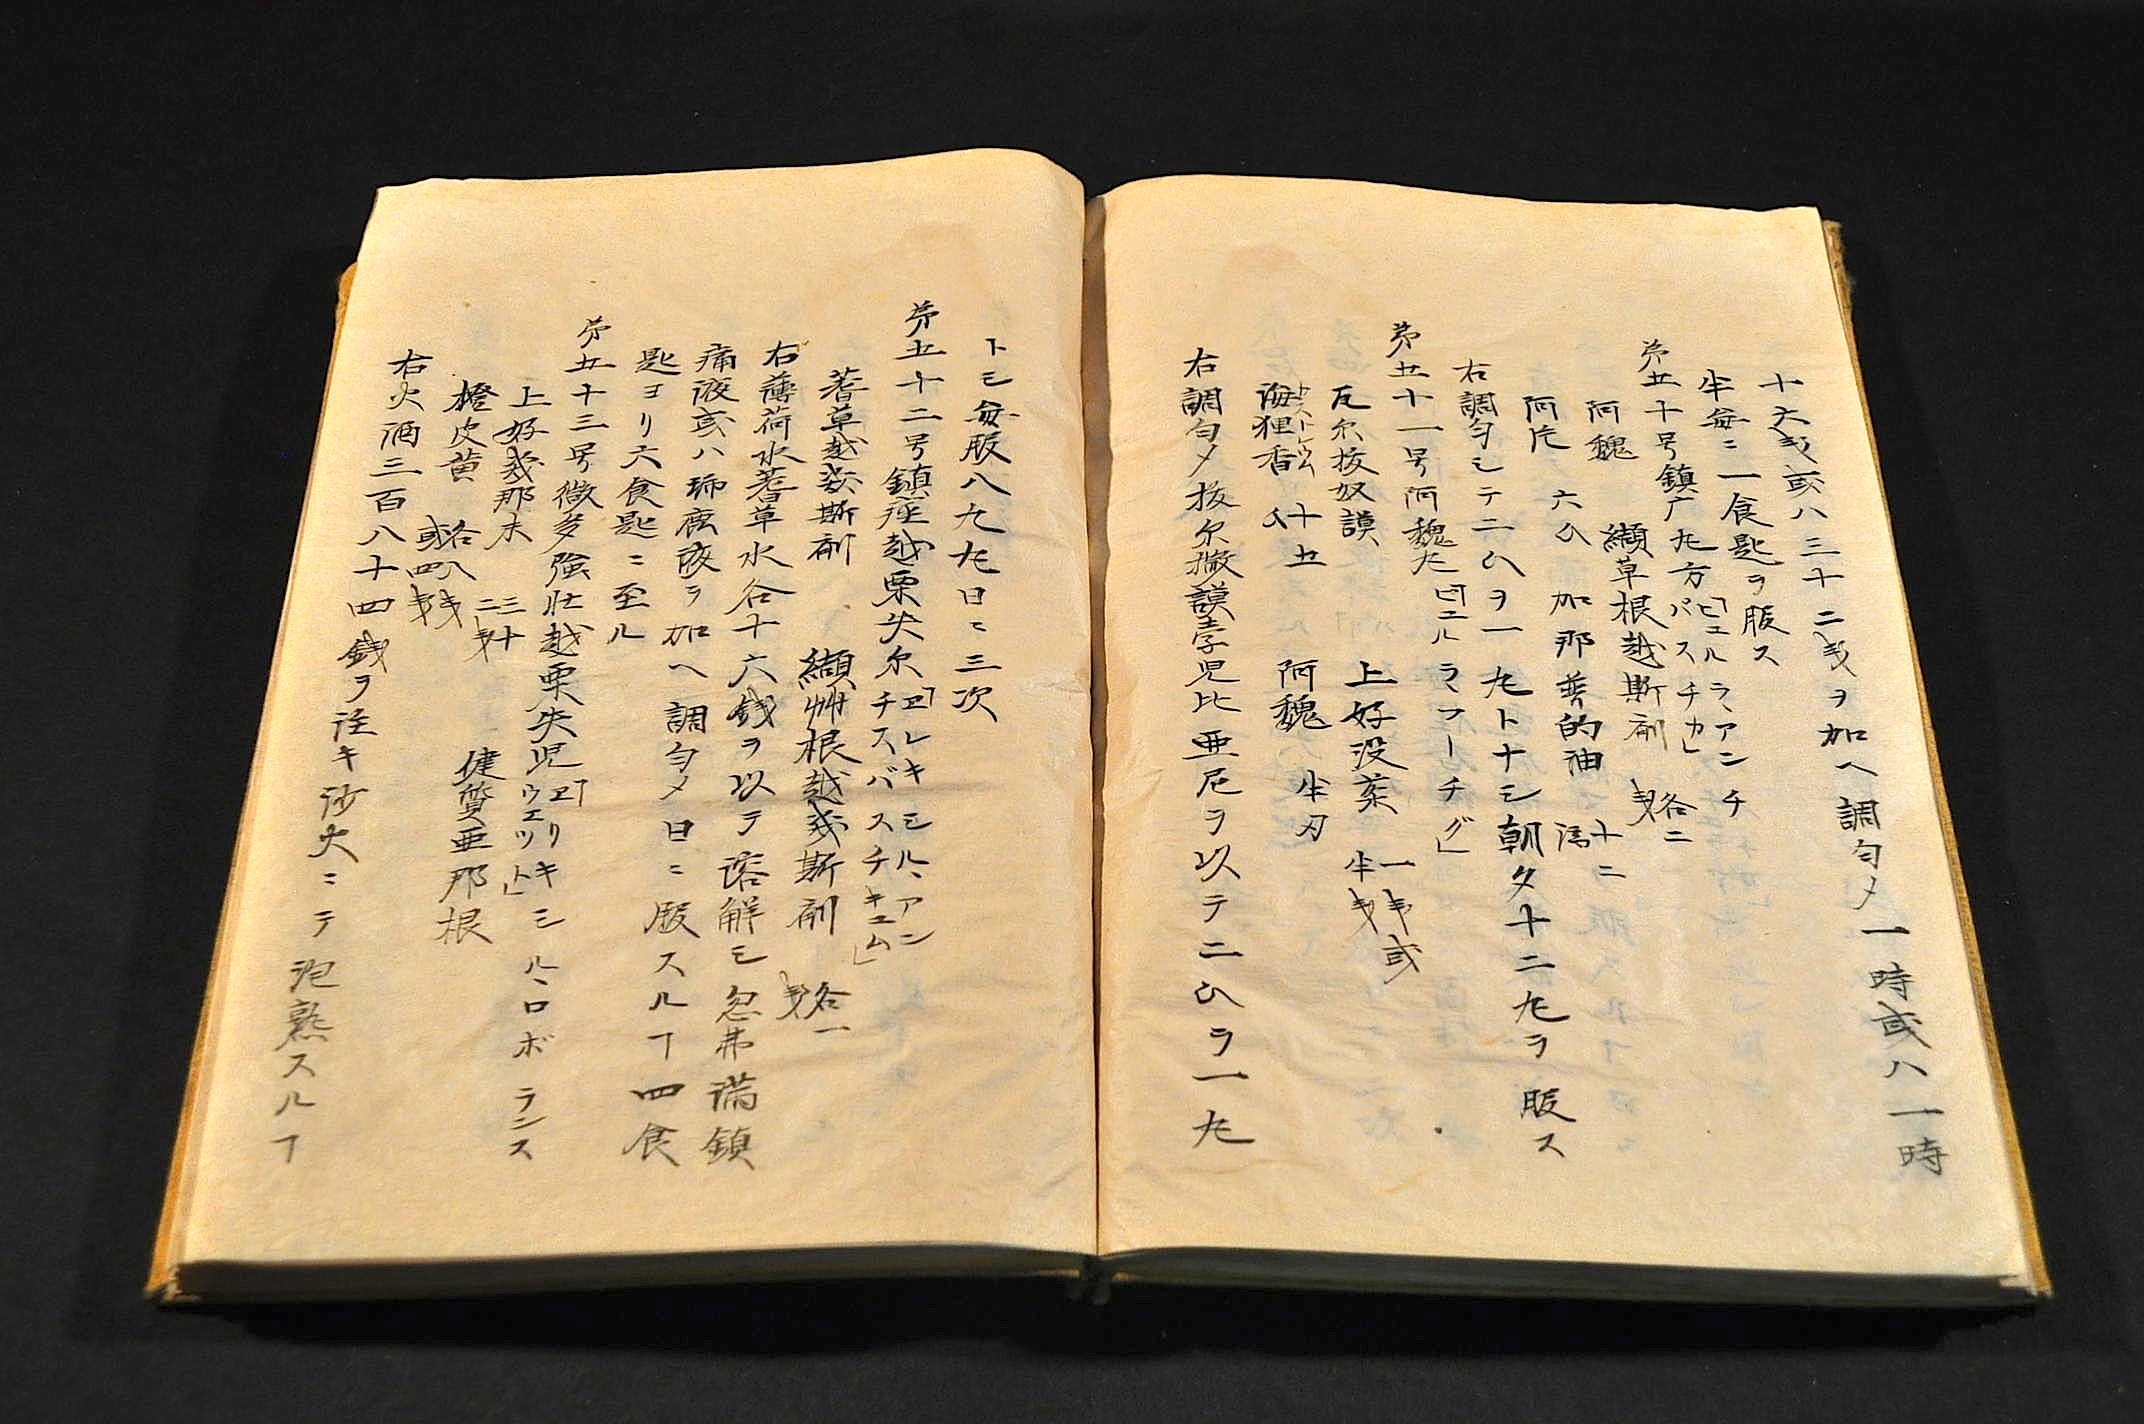 十六戔或ハ三十二戔ヲ加ヘ調匀〆一時或ハ一時
半毎ニ一食匙ヲ服ス
第五十号鎮痙丸方「ピルラ、アンチ
パスチカ」
阿魏　纈草根越斯　各二戔
阿片　六　加那普的油　十二滴
右調匀シテ二ヲ一丸トナシ朝夕十二丸ヲ服ス
第五十一号阿魏丸「ピルラ、フーチダ」
瓦尔抜奴謨　上好没薬　一戔或半戔
海狸香　十五　阿魏　半刃
カストレウム
右調匀〆抜尔撒謨孛児比亜尼ヲ以テ二ヲ一丸
トシ毎服八九丸日ニ三次
第五十二号鎮痙越栗失尔「エレキシル、アン
チスパスチキュム」
蓍草越幾斯剤　纈艸根越幾斯剤　各一戔
右薄荷水蓍草水各十六銭ヲ以テ溶解シ忽弗満鎮
痛液或ハ琥液ヲ加ヘ調匀〆日ニ服スルヿ四食
匙ヨリ六食匙ニ至ル
第五十三号微多強壮越栗失児「エリキシル、ロボランス
ウエット」
上好幾那末　三十二戔
橙皮黄　各八戔或四戔　健質亜那根
右火酒三百八十四銭ヲ注キ沙火ニテ泡熟スルヿ